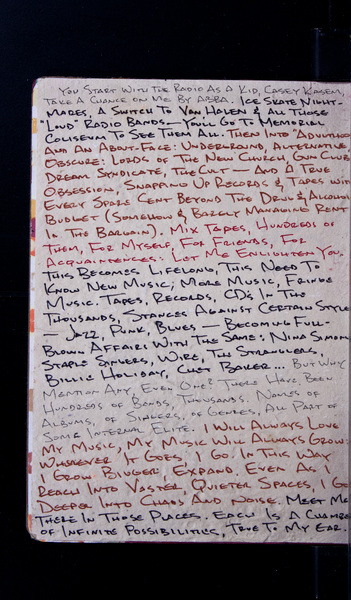 You Start With the Radio As A Kid, Casey Kasem,
Take A Chance On Me By ABBA. Ice Skate Night-
mares, A Switch To Van Halen & All Those
"Loud" Radio Bands — You'll Go To Memorial
Coliseum To See Them All. Then Into "Adulthood"
And An About-Face: Underground, Alternative,
Obscure: Lords of The New Church, Gun Club,
Dream Syndicate, The Cult — And A True
Obsession, Snapping Up Records & Tapes with
Every Spare Cent Beyond The Drug & Alcohol
Budget (Somehow & Barely Managing Rent
In The Bargain). Mix Tapes, Hundreds of
Them, For Myself, For Friends, For
Acquaintences: Let Me Enlighten You.
This Becomes Lifelong, This Need To
Know New Music; More Music, Fringe
Music. Tapes, Records, CD's In The
Thousands, Stances Against Certain Styles
— Jazz, Punk, Blues — Becoming Full-
Blown Affairs With The Same: Nina Simone,
Staple Singers, Wire, The Stranglers,
Billie Holiday, Chet Baker... But Why
Mention Any, Even One? There Have Been
Hundreds of Bands, Thousands. Names of
Albums, of Singers, of Genres, All Part of
Some Internal Elite. I Will Always Love
My Music, My Music Will Always Grow:
Wherever It Goes, I Go. In This Way
I Grow Bigger, Expand. Even As I
Reach Into Vaster, Quieter Spaces, I Go
Deeper Into Chaos And Noise. Meet Me
There In Those Places. Each Is A Chamber
of Infinite Possibilities, True To My Ear.